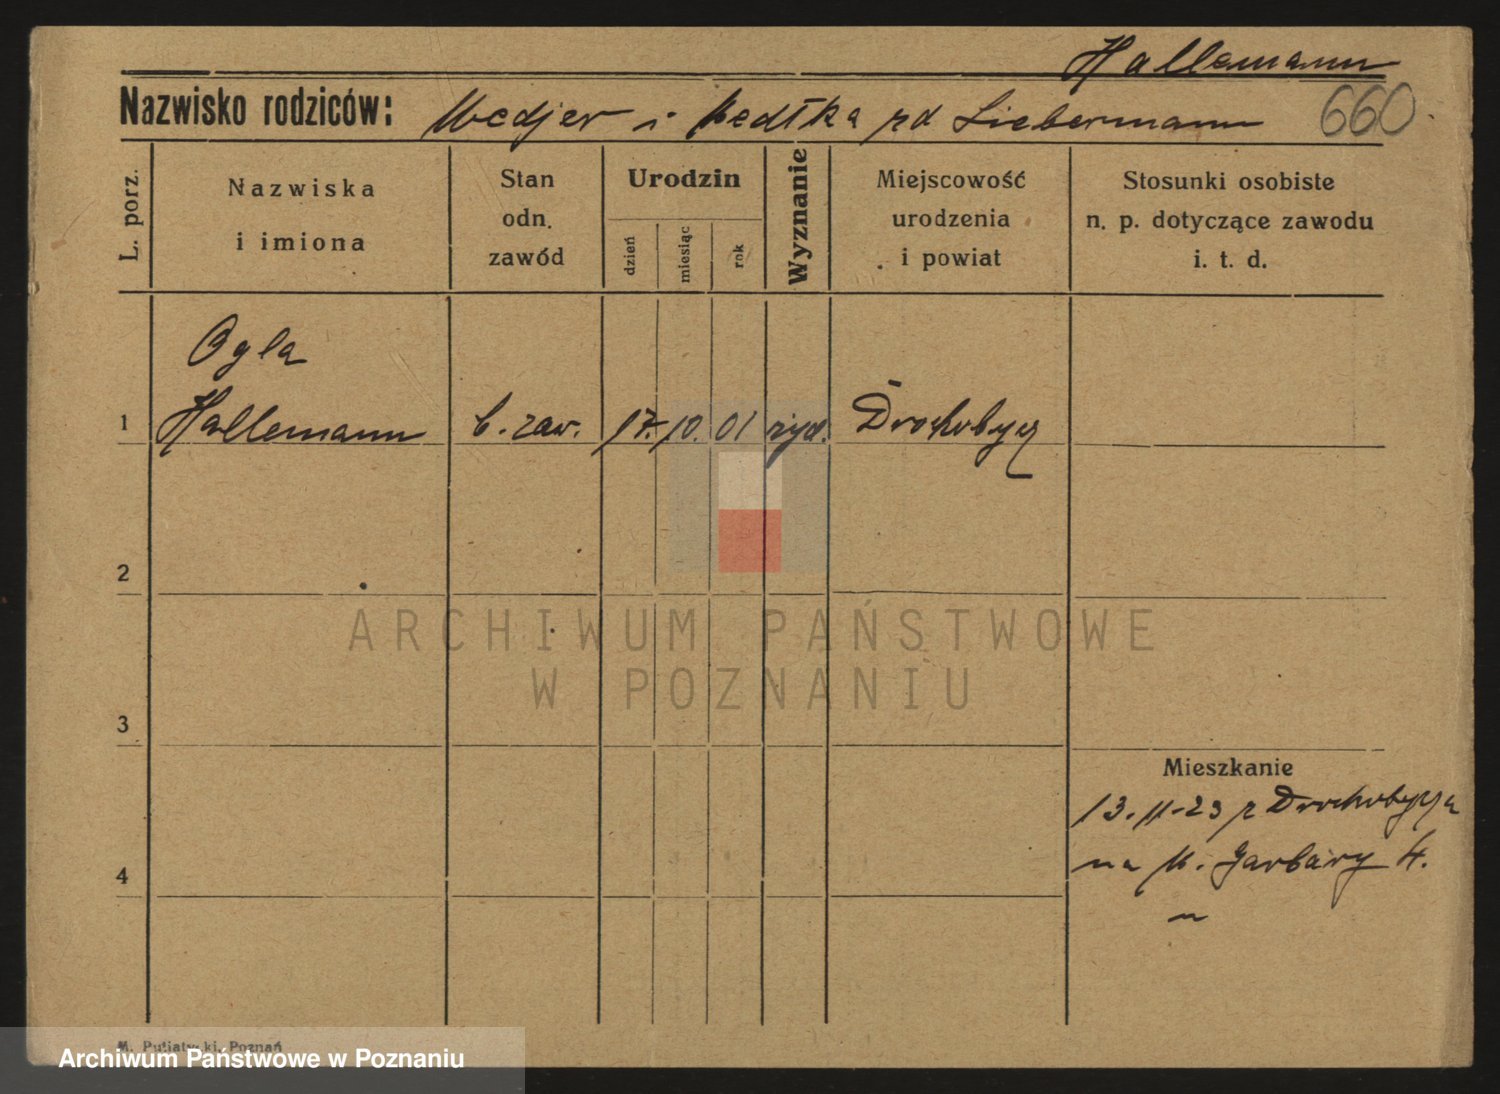 Hallemann
Nazwisko rodziców: i rd Liebermann 660
L. porz.
Nazwiska
i imiona
Stan
odn.
zawód
Urodzin
dzień
miesiąc
rok
Wyznanie
Miejscowość
urodzenia
i powiat
Stosunki osobiste
n. p. dotyczące zawodu
i. t. d.
Ogla
1 Hallemann b. zaw. 17. 10. 01 żyd. Drohobycz
2
ARCHIWUM PAŃSTWOWE
W POZNANIU
3
Mieszkanie
13. 11-23 z Drohobycza
na M. Garbary 4.
4
M. Putiatycki, Poznań
Archiwum Państwowe w Poznaniu